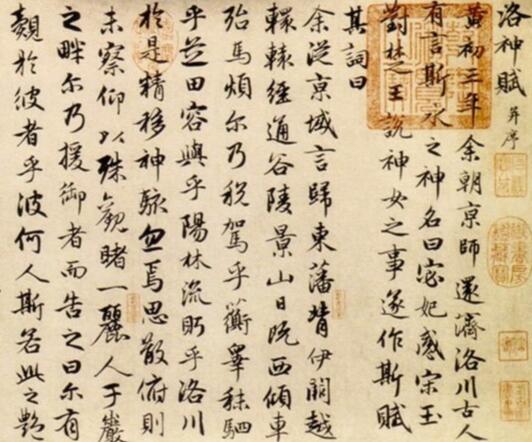 洛神賦 并序
黃初三年余朝京師還濟洛川古人
有言斯水之神名曰宓妃感宋玉
對楚王說神女之事遂作斯賦
其詞曰
余從京域言歸東藩背伊闕越
轘轅經通谷陵景山日既西傾車
殆馬煩尔乃稅駕乎蘅皋秣駟
乎芝田容與乎陽林流眄乎洛川
於是精移神駭忽焉思散俯則
未察仰以殊觀睹一麗人于巖
之畔尔乃援御者而告之曰尔有
覿於彼者乎彼何人斯若此之艷